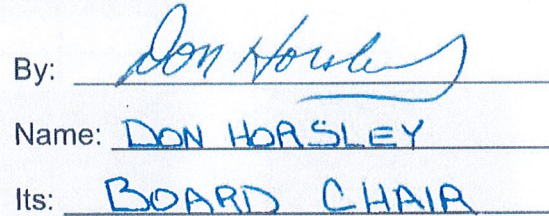 By: Don Horsley
Name: DON HORSLEY
Its: BOARD CHAIR